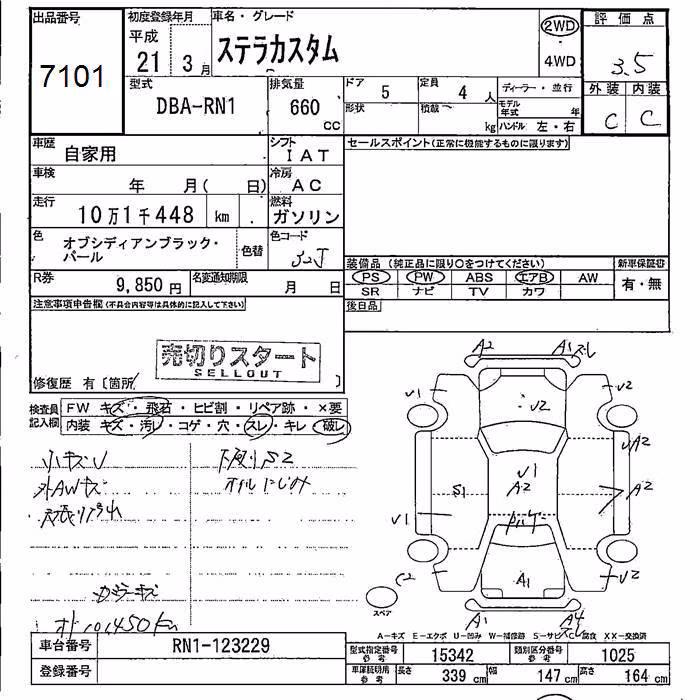 出品番号 7101
初度登録年月 平成 21 年 3 月
車名・グレード ステラカスタム
2WD ・ 4WD
評価点 3.5
外装 C 内装 C
型式 DBA-RN1
排気量 660 CC
ドア 5 定員 4 人
形状 積載 kg
ディーラー・並行
モデル年式 年
ハンドル 左・右
車歴 自家用
シフト IAT
車検 年 月( 日)
冷房 AC
走行 10万1千448 km
燃料 ガソリン
色 オブシディアンブラック・パール
色替
色コード 32J
R券 9,850 円
名変通知期限 月 日
セールスポイント(正常に機能するものに限ります)
装備品(純正品に限り○をつけてください)
新車保証書
PS PW ABS エアB AW
有・無
SR ナビ TV カワ
後日品
注意事項申告欄(不具合内容等は具体的に記入して下さい)
売切りスタート
SELLOUT
修復歴 有〔箇所
検査員記入欄
FW キズ・飛石・ヒビ割・リペア跡・×要
内装 キズ・汚レ・コゲ・穴・スレ・キレ・破レ
小キズU
下廻りS2
外AWキズ
オイルにじみ
ガラーキズ
オド101,450km
A2 A1 スレ
V1 V2 V2
VA2
V1
S1 A2 A2
V1
A1
C2 V2
スペア
A1 A4 スレ
A−キズ E−エクボ U−凹み W−補修跡 S−サビ C−腐食 XX−交換済
車台番号 RN1-123229
登録番号
型式指定番号 参考 15342
類別区分番号 参考 1025
車庫証明用 参考 長さ 339 cm 幅 147 cm 高さ 164 cm